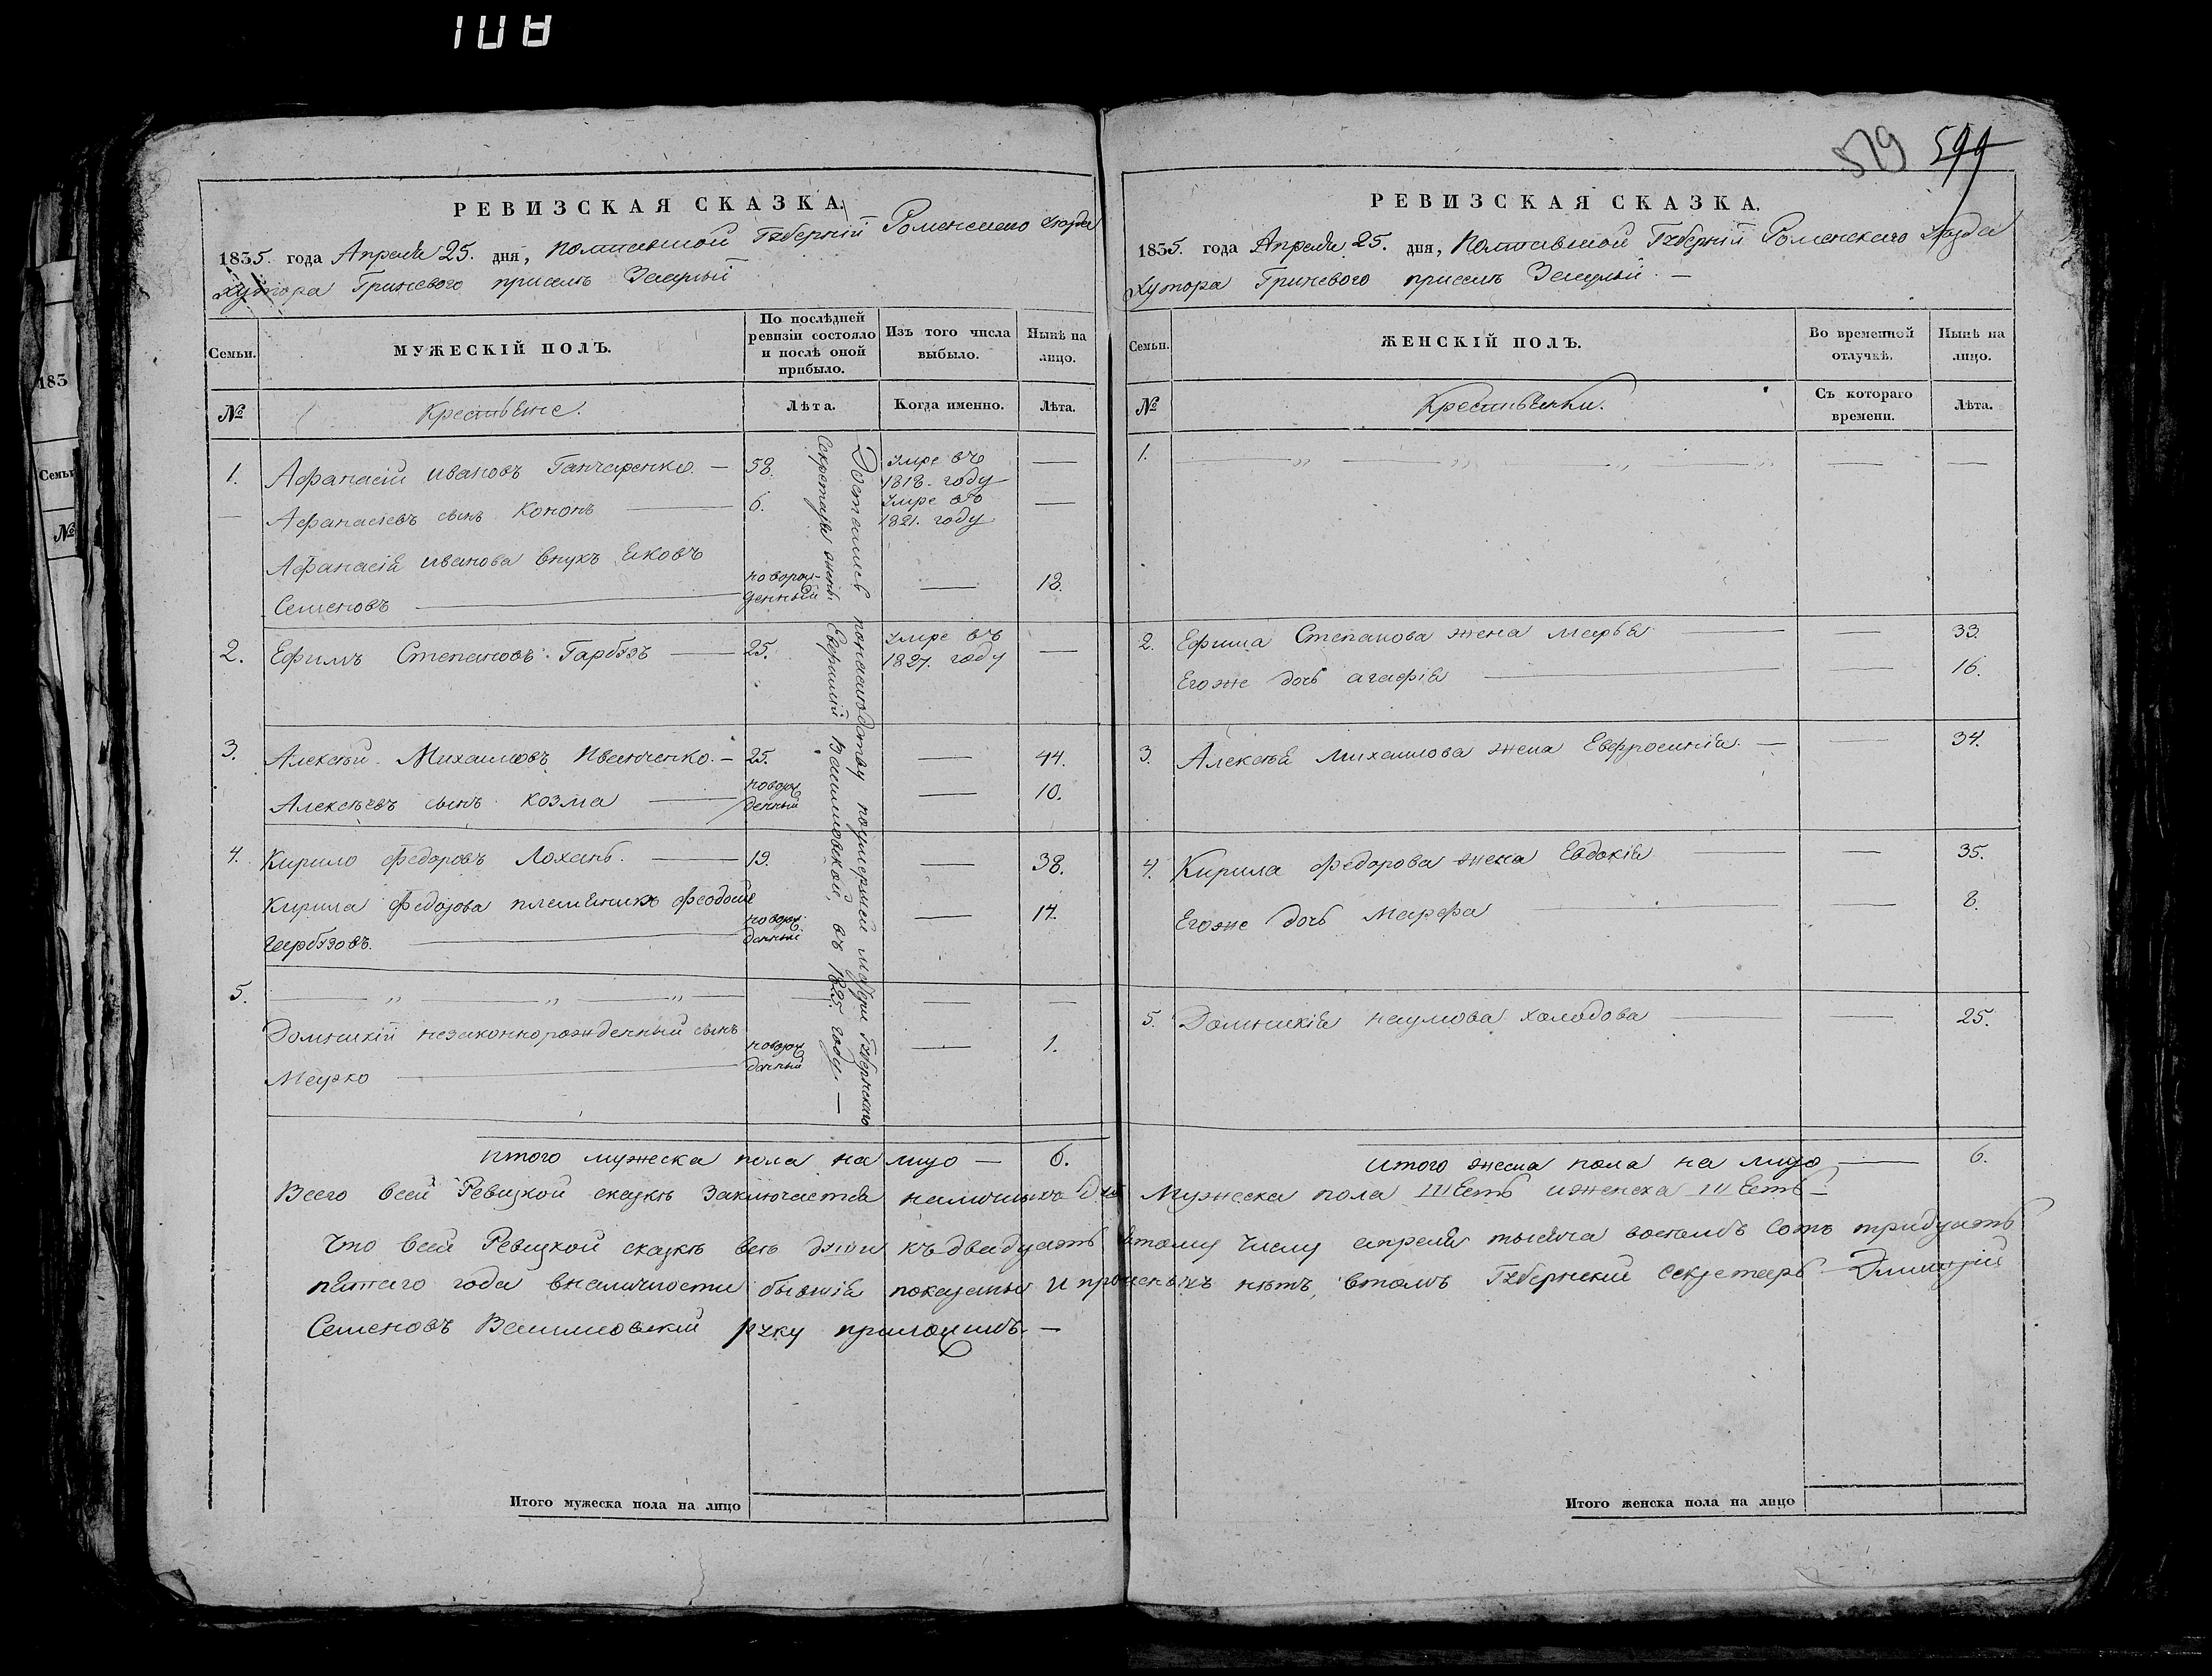 108
579 599
РЕВИЗСКАЯ СКАЗКА.
1835. года Апреля 25. дня, Полтавской Губернiй Роменского уезда
хутора Гриневого приселъ
Семьи.
МУЖЕСКIЙ ПОЛЪ.
По послѣдней ревизiи состояло и послѣ оной прибыло.
Изъ того числа выбыло.
Нынѣ на лицо.
№
Крестьяне.
Лѣта.
Когда именно.
Лѣта.
Достался понаследству поумершей матери Губернскаго
Секретаря жены Евфимiй Вашловской, въ 1825. году. —
1. Афанасiй ивановъ Ганчаренко. — 58. Умре въ 1818. году —
— Афанасiевъ сынъ Кононъ — 6. Умре въ 1821. году —
Афанасiя иванова внукъ Яковъ
Семеновъ — новорожденный — 18.
2. Ефимъ Степановъ Гарбузъ — 25. Умре въ 1827. году —
3. Алексѣй Михаиловъ Иванченко. — 25. — 44.
Алексѣевъ сынъ козма — новорожденный — 10.
4. Кирило Федоровъ Лохань. — 19. — 38.
Кирила Федорова племяникъ Феодосiй
Гарбузовъ. — новорожденный — 14.
5. — „ — „ — „ — — — —
Домникiй незаконнорожденный сынъ
Марко — новорожденный — 1.
итого мужеска пола на лицо — 6.
Итого мужеска пола на лицо
РЕВИЗСКАЯ СКАЗКА.
1835. года Апреля 25. дня, Полтавской Губернiй Роменскаго уезда
Хутора Гриневого приселъ
Семьи.
ЖЕНСКIЙ ПОЛЪ.
Во временной отлучкѣ.
Нынѣ на лицо.
№
Крестьянки.
Съ котораго времени.
Лѣта.
1. — „ — „ — „ — „ — —
2. Ефима Степанова жена марья — — 33.
Егоже дочь агафiя — — 16.
3. Алексѣя михаилова жена Евфросинiя. — — 34.
4. Кирила Федорова жена Евдокiя — — 35.
Егоже дочь Марфа — — 8.
5. Домникiя наумова холодова — — 25.
итого женска пола на лицо — 6.
Всего всей Ревизкой сказкѣ заключается наличныхъ Душ Мужеска пола шесть иженска шесть —
Что всей Ревизкой сказкѣ всѣ души къдвадцать пятому числу апреля тысяча восемь сотъ тридцать
пятаго года вналичности бывшiя показаны и прописныхъ нѣтъ, втомъ Губернскiй Секретарь Димитрiй
Семеновъ Вашловскiй руку приложилъ. —
Итого женска пола на лицо
183
Семьи
№